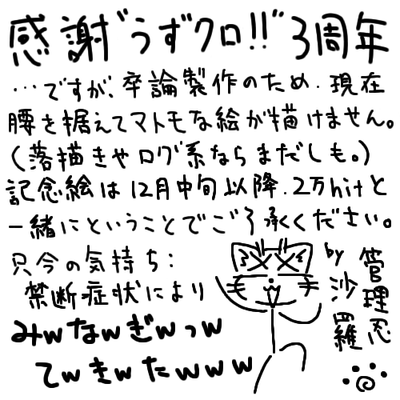 感謝"うずクロ!!"3周年
…ですが、卒論製作のため、現在
腰を据えてマトモな絵が描けません。
(落描きやログ系ならまだしも。)
記念絵は12月中旬以降、2万hitと
一緒にということでご了承ください。
只今の気持ち:
禁断症状により
みwなwぎwっw
てwきwたwww
by管理忍
沙羅